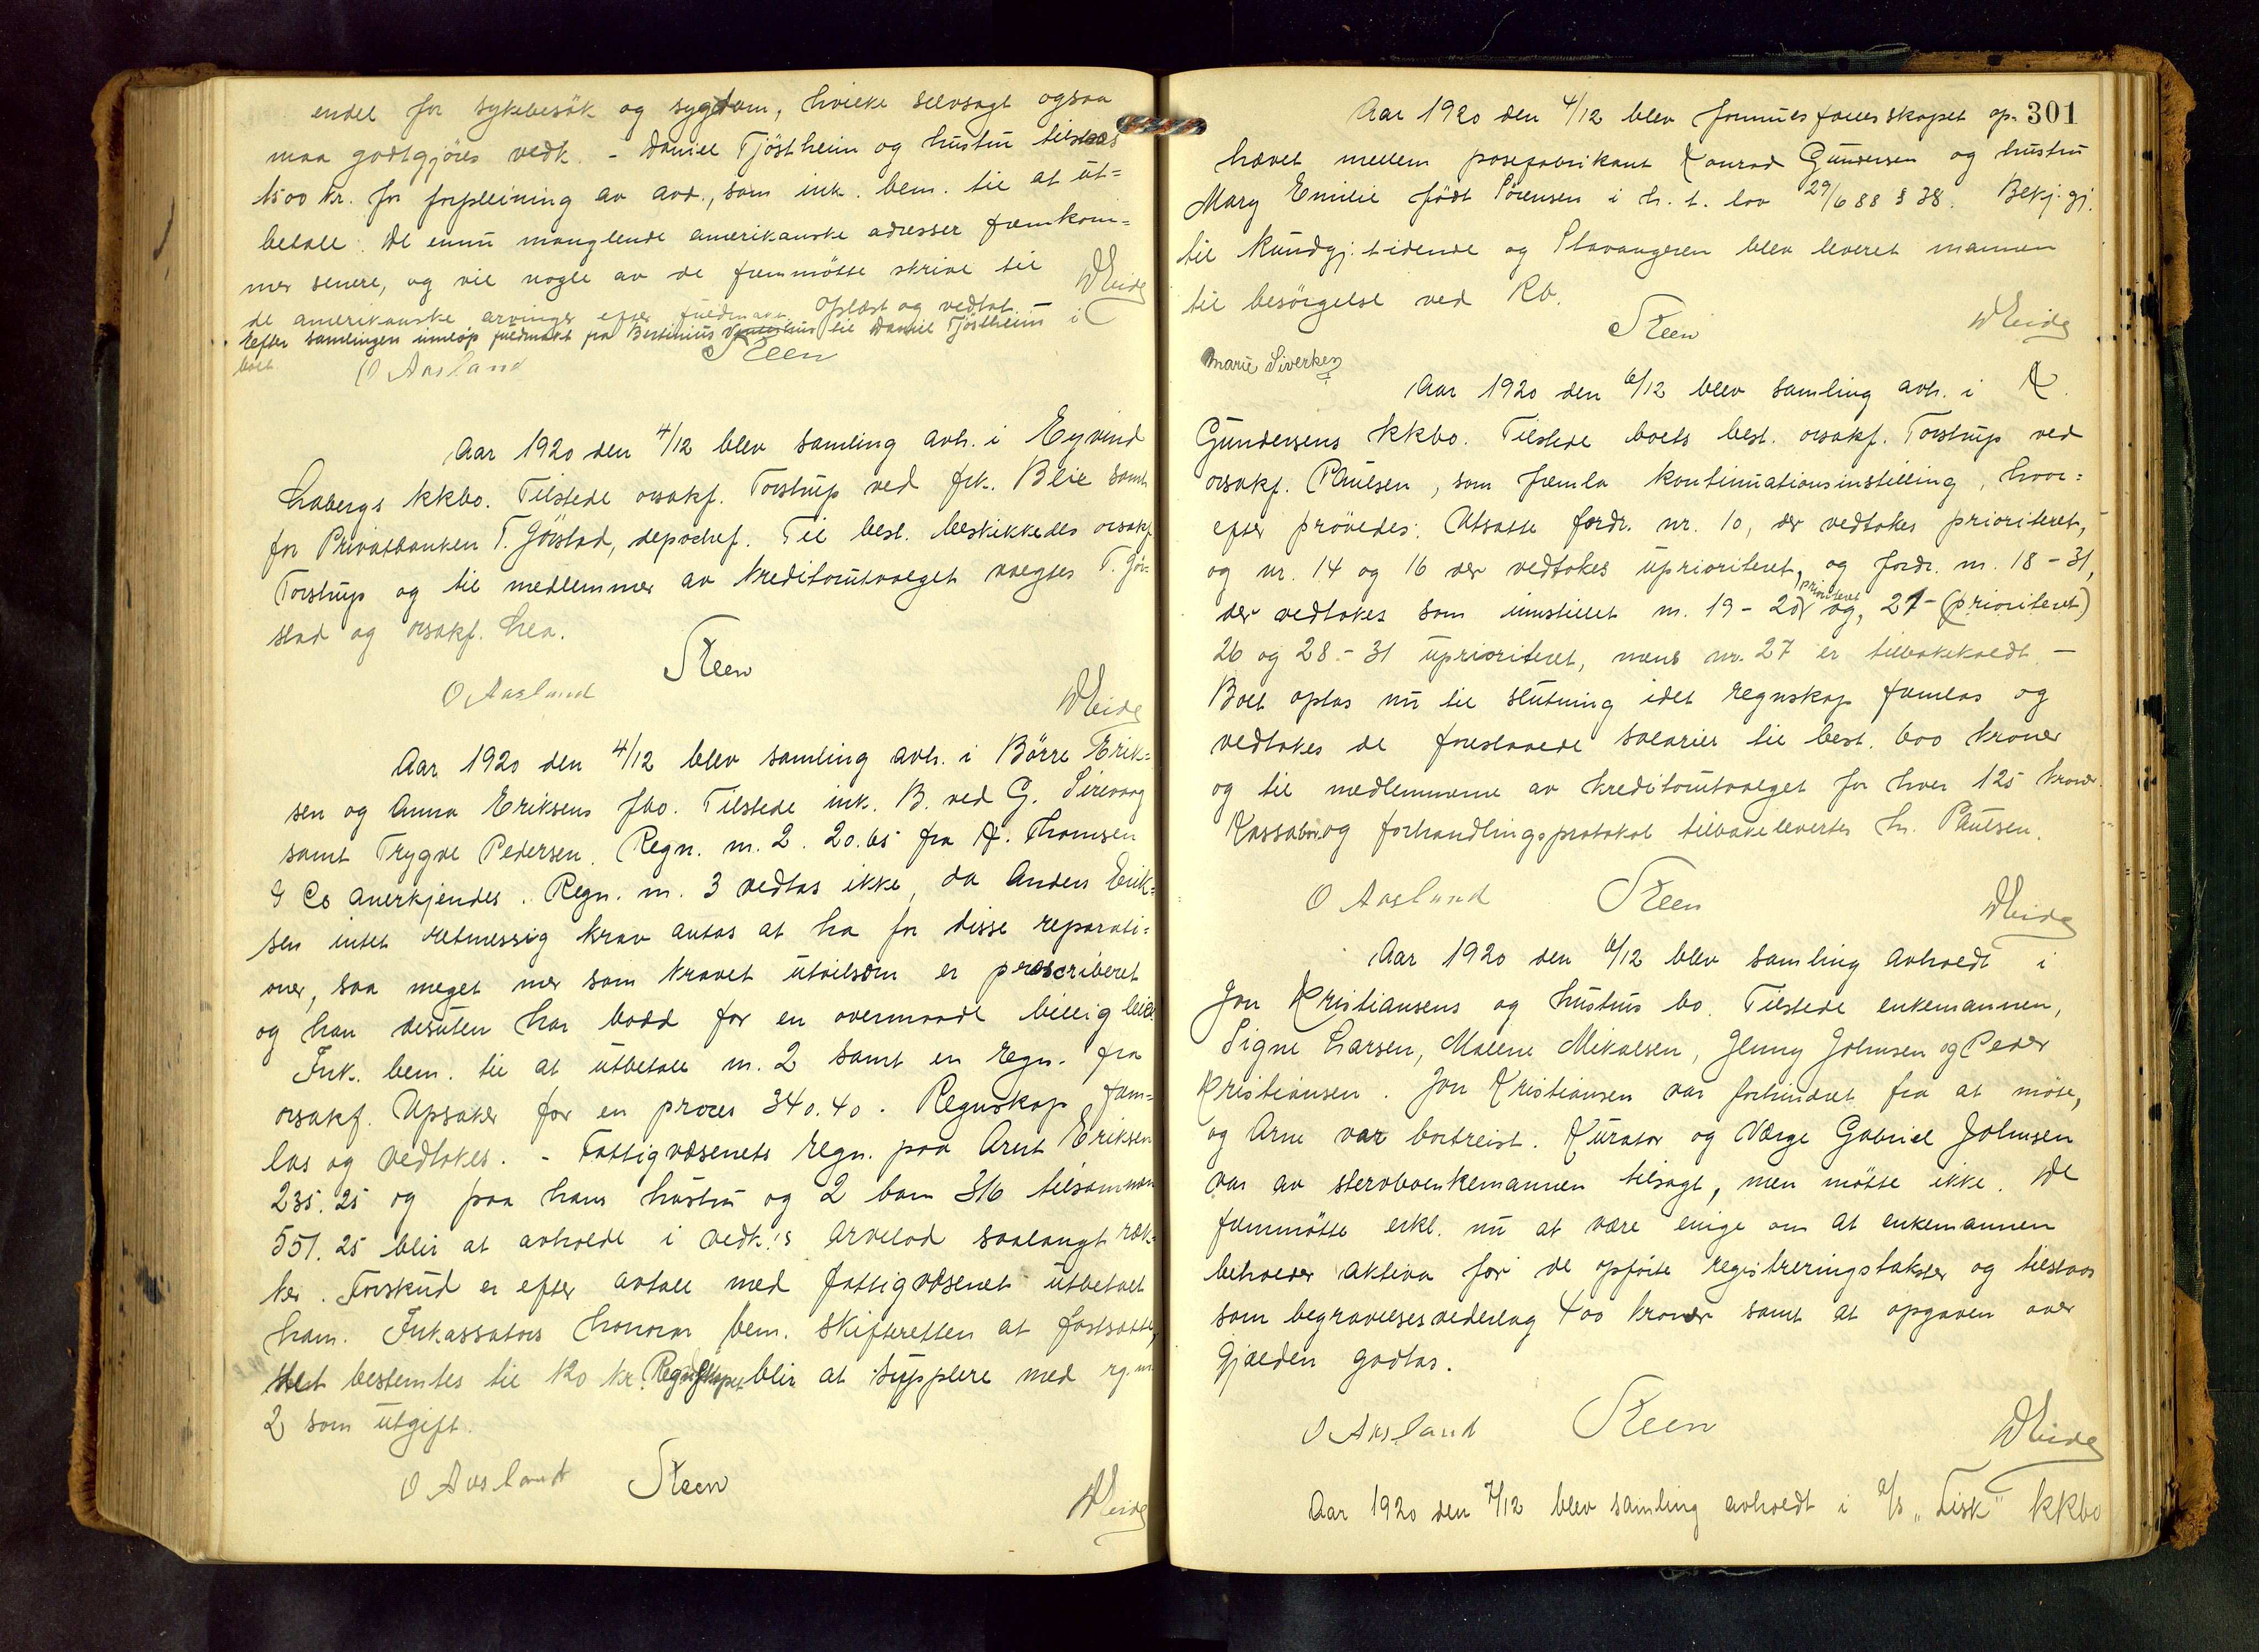 endel for sykebesök og sygdom, hvilke selvsagt ogsaa
maa godtgjöres vedk. - Daniel Tjöstheim og hustru tilstaaes
1500 kr. for forpleining av avd., som ink. bem. til at ut-
betale. De ennu manglende amerikanske adresser fremkom-
mer senere, og vil nogle av de fremmötte skrive til
de amerikanske arvinger efter fuldmakt. Oplæst og vedtat.
Efter samlingen innløp fuldmakt fra Bertinius til Daniel Tjöstheim i
boet.
O Aasland Steen WEide
Aar 1920 den 4/12 blev samling avh. i Eyvind
Habergs kkbo. Tilstede orsakf. Torstrup ved frk. Blie samt
for Privatbanken T. Gjörstad, depochef. Til best. beskikkedes orsakf.
Torstrup og til medlemmer av kreditorutvalget valgtes T. Gjör-
stad og orsakf. Lea.
O Aasland Steen WEide
Aar 1920 den 4/12 blev samling avh. i Börre Erik-
sen og Anna Eriksens fbo. Tilstede ink. B. ved G. Sirevaag
samt Trygve Pedersen. Regn. nr. 2. 20.65 fra A. Thomsen
& Co anerkjendes. Regn. nr. 3 vedtas ikke, da Anders Erik-
sen intet retmessig krav antas at ha for disse reparati-
oner, saa meget mer som kravet utvilsom er præscriberet
og han desuten har bodd for en overmaade billig leie.
Ink. bem. til at utbetale nr. 2 samt en regn. fra
orsakf. Upsaker for en proces 340.40. Regnskap frem-
las og vedtokes. - Fattigvæsenets regn. paa Arnt Eriksen
235.25 og paa hans hustru og 2 barn 316 tilsammen
551.25 blir at avholde i vedk.'s arvelod saalangt ræk-
ker. Forskud er efter avtale med fattigvæsenet utbetalt
ham. Inkassators honorar bem. skifteretten at fastsætte,
det bestemtes til 120 kr. Regnskapet blir at supplere med rg. nr.
2 som utgift.
O Aasland Steen WEide
301
Aar 1920 den 4/12 blev formuesfællesskapet op-
hævet mellem posefabrikant Konrad Gundersen og hustru
Mary Emilie födt Sörensen i h. t. lov 29/6 88 § 38. Bekj.gj.
til Kundgj.tidende og Stavangeren blev leveret mannen
til besörgelse ved Rb.
Steen WEide
Marie Siverkes
Aar 1920 den 6/12 blev samling avh. i K.
Gundersens kkbo. Tilstede boets best. orsakf. Torstrup ved
orsakf. Paulsen, som fremla kontinuationsinstilling, hvor-
efter prövedes: Utsatte fordr. nr. 10, der vedtokes prioriteret,
og nr. 14 og 16 der vedtokes uprioriteret, og fordr. nr. 18-31,
der vedtokes som innstillet nr. 19-20 prioriteret og, 21- (prioriteret)
26 og 28-31 uprioriteret, mens nr. 27 er tilbakekaldt. -
Boet optas nu til slutning idet regnskap fremlas og
vedtokes de foreslaaede salarier til best. 600 kroner
og til medlemmerne av kreditorutvalget for hver 125 kroner.
Kassabok og forhandlingsprotokol tilbakelevertes hr. Paulsen.
O Aasland Steen WEide
Aar 1920 den 6/12 blev samling avholdt i
Jon Kristiansens og hustrus bo. Tilstede enkemannen,
Signe Larsen, Malene Mikalsen, Jenny Johnsen og Peder
Kristiansen. Jon Kristiansen var forhindret fra at möte,
og Arne var bortreist. Kurator og Værge Gabriel Johnsen
var av stervboenkemannen tilsagt, men mötte ikke. De
fremmötte erkl. nu at være enige om at enkemannen
beholder aktiva for de opførte registreringstakster og tilstaaes
som begravelsesvederlag 400 kroner samt at opgaven over
Gjælden godtas.
O Aasland Steen WEide
Aar 1920 den 7/12 blev samling avholdt i A/S "Fisk" kkbo